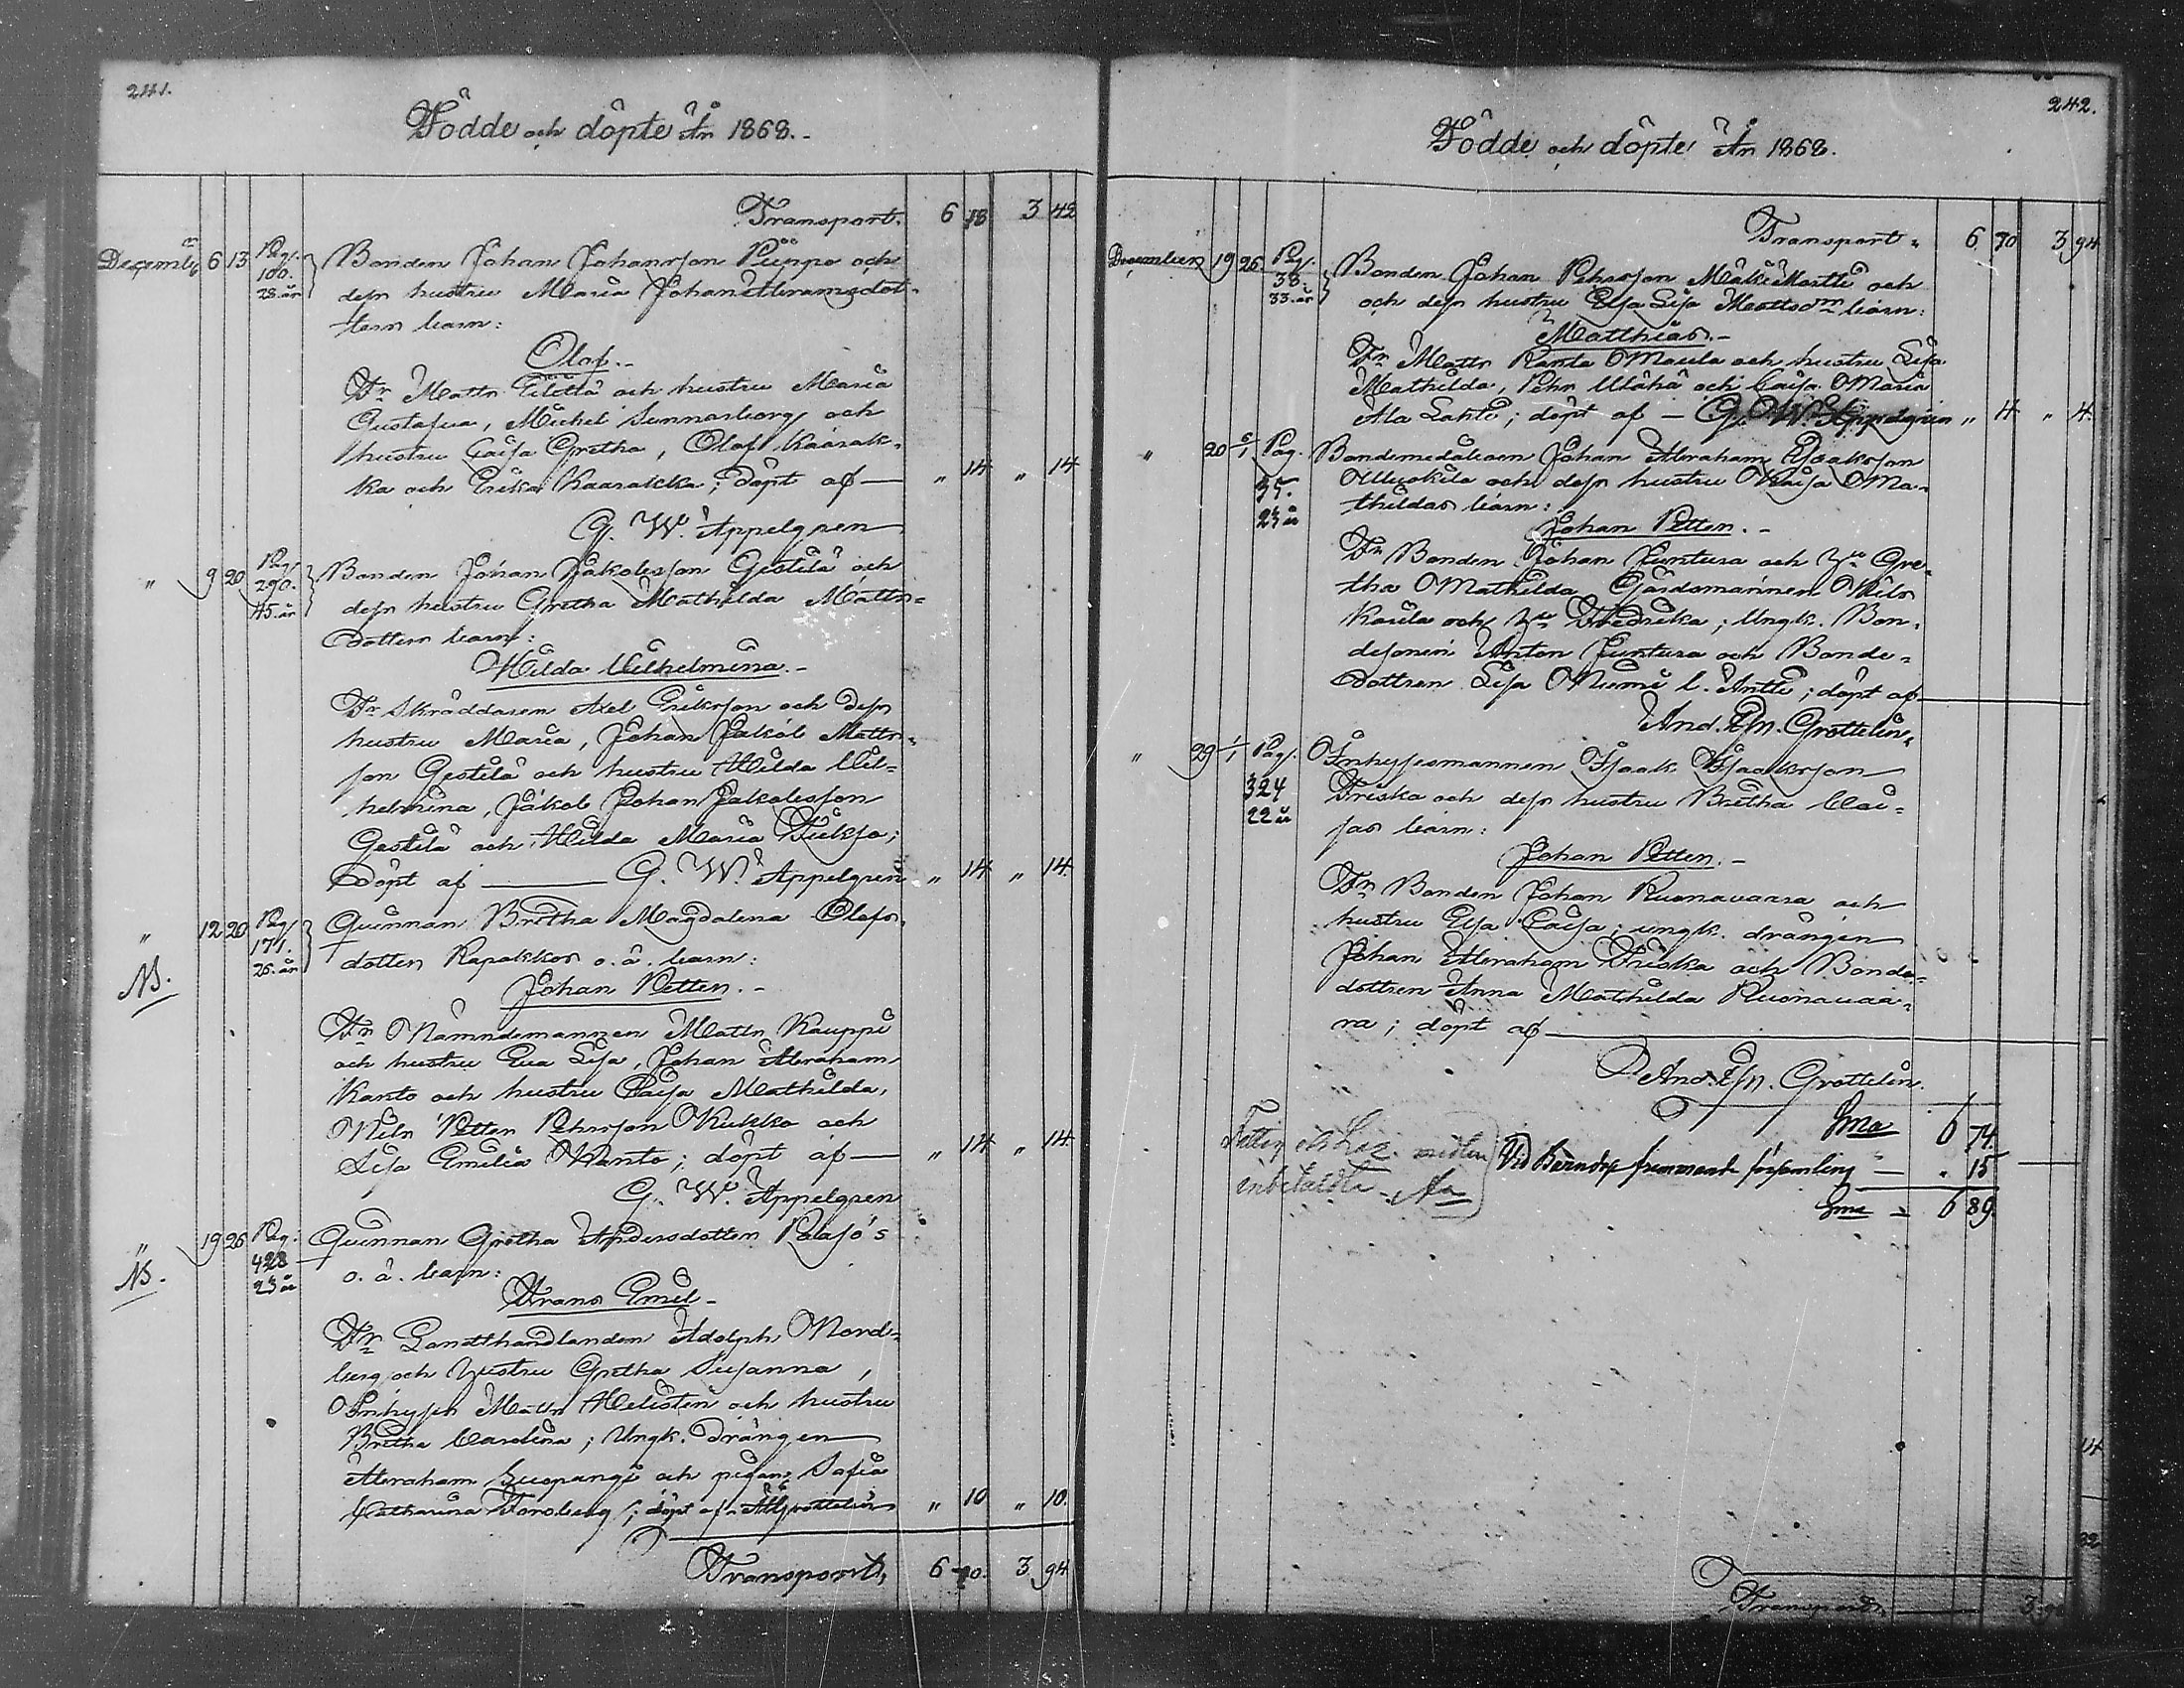 241.
Födde och döpte År 1868.
Transport. 6 18 3 42
Decemb. 6 13 Pag. 100. 28. år Bonden Johan Johansson Piippo och
dess hustru Maria Johan Abramsdot-
ters barn:
Olof.
Fr Matts och hustru Maria
Gustafva, Michel Sunnarborg och
hustru Caisa Gretha, Olof Kaarak-
ka och Erika Kaarakka; döpt af — " 14 " 14
G. W. Appelgren
" 9 20 Pag. 290. 45. år Bonden Johan Jakobsson Gestilä och
dess hustru Gretha Mathilda Matts-
dotters barn:
Hilda Vilhelmina.-
Fr Skräddaren Axel Eriksson och dess
hustru Maria, Johan Jakob Matts-
son Gestilä och hustru Hilda Vil-
helmina, Jakob Johan Jakobsson
Gestilä och Hilda Maria
Döpt af — G. W. Appelgren " 14 " 14.
" 12 20 Pag. 171. 26. år Quinnan Britha Magdalena Olofs-
NB. dotter Rapakkos o. ä. barn:
Johan Petter.-
Fr Nämndemannen Matts Kauppi
och hustru Eva Lisa, Johan Abraham
Kanto och hustru Caisa Mathilda,
Nils Petter Pehrsson Kukko och
Lisa Emilia Kanto; döpt af — " 14 " 14.
G. W. Appelgren
" 19 26 Pag: 428 23 år Quinnan Gretha Andersdotter Palajo's
NB. o. ä. barn:
Frans Emil-
Fr Landthandlanden Adolph Nord-
berg och hustru Gretha Susanna,
Inhyses Matts Helisten och hustru
Britha Carolina; Ungk. Drängen
Abraham Luspangi och pigan Sofia
Catharina Forsberg; döpt af " 10 " 10.
Transport, 6 70. 3 94
242.
Födde och döpte År 1868.
Transport. 6 70 3 94
December 19 26 Pag. 38 33. år Bonden Johan Pehrsson Mäki Martti och
och dess hustru Elsa Lisa Mattsdrs barn:
Matthias.-
Fr Matts Ranta Maula och hustru Lisa
Mathilda, Pehr Ulähä och Caisa Maria
Ala Lahti; döpt af — G. W. Appelgren " 4 " 4.
" 20 6/1 Pag. 35. 24 år Bondemedåboen Johan Abraham Isaksson
Olluokila och dess hustru Kaisa Ma-
thildas barn:
Johan Petter.-
Fr Bonden Johan Juntura och Hu Gre-
tha Mathilda Gårdsmannen Nils
Kaula och Hu Fredrika; Ungk. Bon-
desonen Anton Juntura och Bonde-
dottren Lisa Niemi l. Antti; döpt af
And. Grottelin.
" 29 1/1 Pag. 324 22 år Inhysesmannen Isaak Isaaksson
Friska och dess hustru Britha Cai-
sas barn:
Johan Petter.-
Fr Bonden Johan Ruonavaara och
hustru Elsa Caisa; ungk. drängen
Johan Abraham Friska och Bonde-
dottren Anna Mathilda Ruonavaa-
ra; döpt af —
And. Grottelin.
Sma 6 74.
Vid Barndop främmande församling — " 15
Sma — 6 89.
Transport. — 3